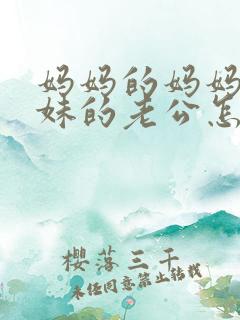 妈妈的妈妈
妹的老公怎
樱落三千
未经同意禁止转载